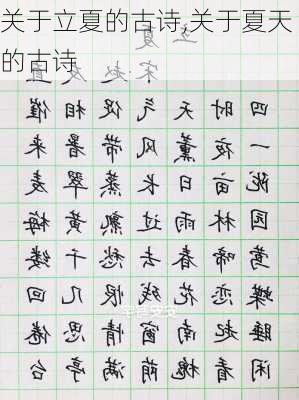 关于立夏的古诗,关于夏天
的古诗
立夏
宋.赵友直
四时天气促相催
一夜薰风带暑来
陇亩日长蒸翠麦
园林雨过熟黄梅
莺啼春去愁千缕
蝶恋花残恨几回
睡起南窗情思倦
闲看槐荫满亭台